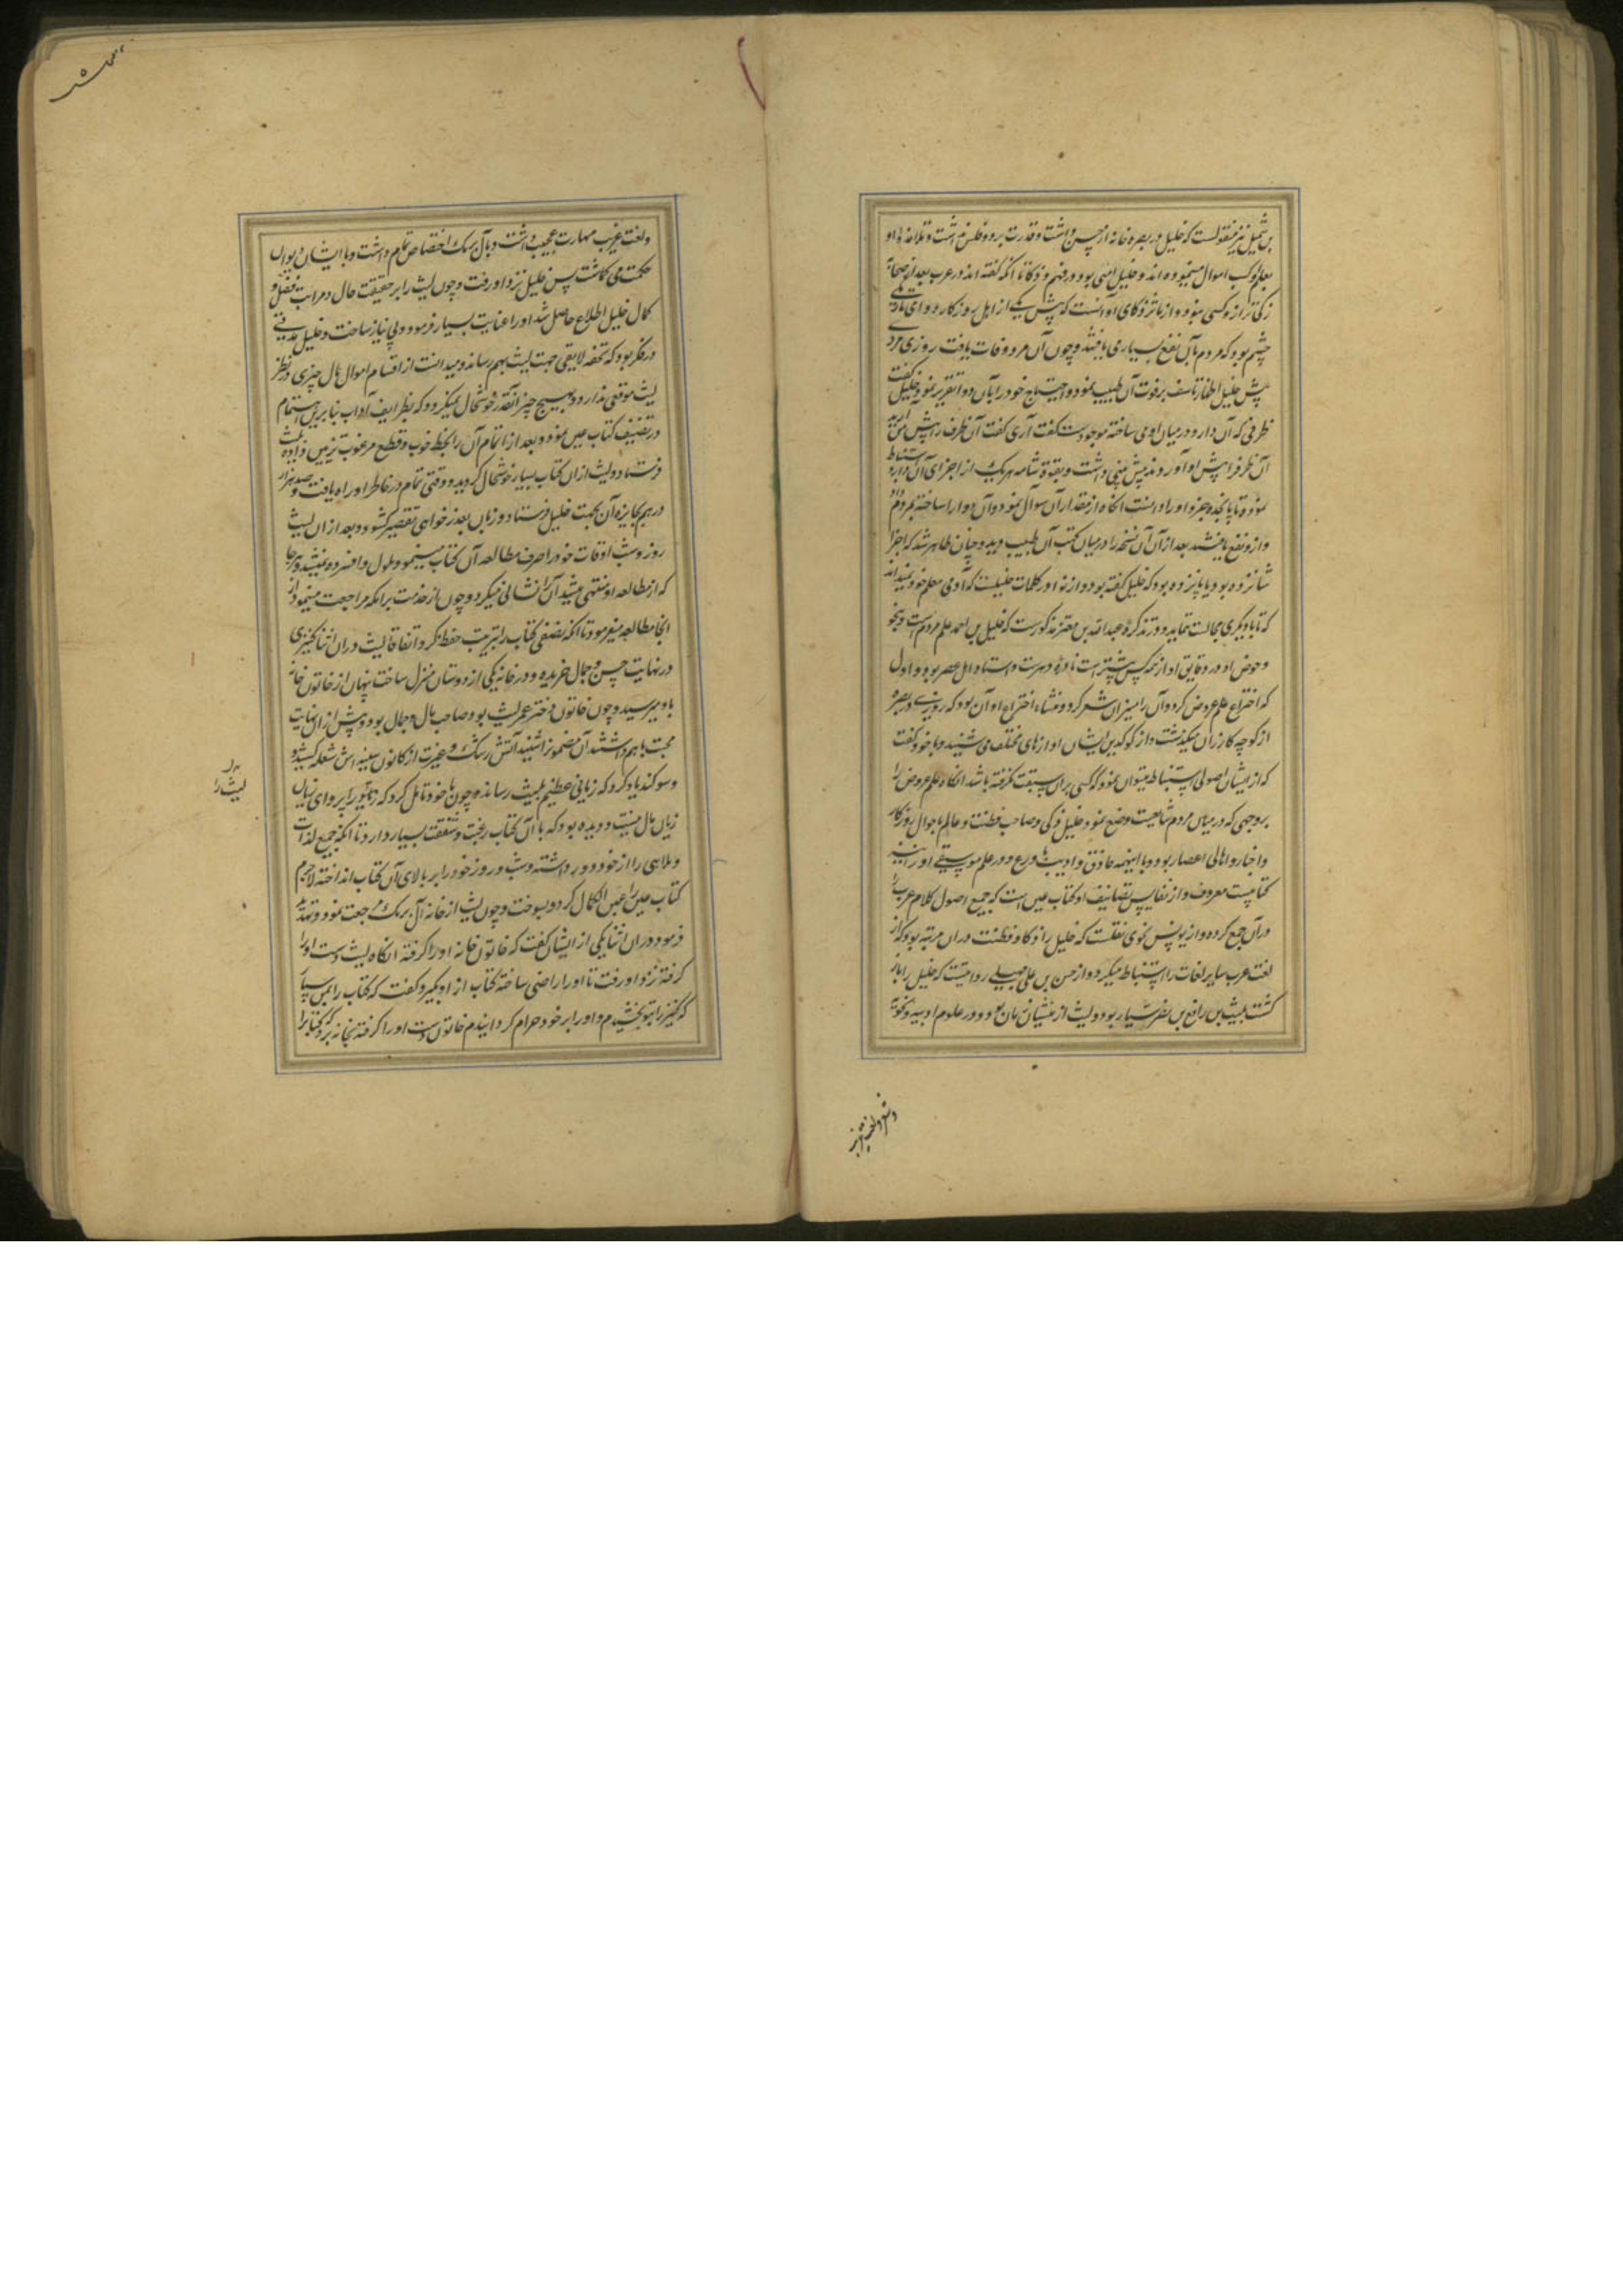 بن شمیل نیز منقولست که خلیل در بصره خانه از خس داشت و قدرت بر دو فلس نداشت و تلامذه او
بعلم او کسب اموال مینموده اند و خلیل امتی بود در فهم و ذکا تا آنکه گفته اند در عرب بعد از صحابه
زکی تر ازو کسی نبوده و از مآثر ذکای او آنست که پیش یکی از اهل روزگار دوای تاریکی
چشم بود که مردم بآن نفع بسیار می یافتند و چون آن مرد وفات یافت روزی مردی
پیش خلیل اظهار تاسف بر فوت آن طبیب نمود و احتیاج خود را بآن دوا تقریر نمود خلیل گفت
ظرفی که آن دارو در میان او می ساخته موجودست گفت آری گفت آن ظرف را پیش من آرید
آن ظرف را پیش او آوردند پیش بینی داشت و بقوة شامه هر یک از اجزای آن دارو را استنباط
نموده تا پانجده جزو او را دانست انگاه از مقدار آن سوال نمود و آن دوا را ساخته بمردم داد
و ازو نفع یافتند بعد از آن آن نسخه را در میان کتب آن طبیب دید و چنان ظاهر شد که اجزا
شانزده بود یا پانزده بود که خلیل گفته بود و از نوادر کلمات خلیلست که آدمی معلم خود نمیداند
که تا با دیگری مجالست نماید و در تذکره عبدالله بن معتز مذکورست که خلیل بن احمد اعلم مردم است و بنحو
و خوض او در دقایق او از همه کس پیشترست نادره دهرست و استاد اهل عصر بود و اول
که اختراع علم عروض کرد و آن را میزان شعر کرد و منشاء اختراع او آن بود که روزی در بصره
از کوچه کازران میگذشت و از کوفتن ایشان اوازهای مختلف می شنید و با خود گفت
که از ایشان اصولی استنباط میتوان نمود که کسی بران سبقت نگرفته باشد انگاه علم عروض را
بر وجهی که در میان مردم شایعست وضع نمود خلیل ذکی و صاحب فطنت و عالم باحوال روزگار
و اخبار و اهالی اعصار بود و با اینهمه حاذق و ادیب با ورع و در علم موسیقی او را نیز
کتابیست معروف و از نفایس تصانیف او کتاب عین است که جمیع اصول کلام عرب را
در آن جمع کرده و از یونس نحوی نقلست که خلیل را ذکا و فطنت در آن مرتبه بود که از
لغت عرب سایر لغات را استنباط میکرد و از حسن بن علی مهلبی روایتست که خلیل را باز
گشت بلیث بن رافع بن نصر سیار بود و لیث از منشیان زمان بود و در علوم ادبیه و نحو
و شعر و لغت غریب
ولغت غریب مهارت عجیب داشت و بآل برمک اختصاص تمام داشت و با ایشان دیوان
حکمت می کاشت پس خلیل نزد او رفت و چون لیث را بر حقیقت حال و مراتب فضل و
کمال خلیل اطلاع حاصل شد او را عنایت بسیار فرمود و بی نیاز ساخت و خلیل مدتی
در فکر بود که تحفه لایقی جهت لیث بهم رساند و میدانست از اقسام اموال مال چیزی در نظر
لیث موقعی ندارد و بهیچ چیز آنقدر خوشحال نمیگردد که بظرایف آداب بنا برین اهتمام
در تصنیف کتاب عین نمود و بعد از اتمام آن را بخط خوب و قطع مرغوب تزیین داده بلیث
فرستاد و لیث از ان کتاب بسیار خوشحال گردید و وقعی تمام در خاطر او راه یافت و صد هزار
درهم بجایزه آن بجهت خلیل فرستاد و زبان بعذر خواهی تقصیر کشود و بعد از ان لیث
روز و شب اوقات خود را صرف مطالعه آن کتاب مینمود و ملول و افسرده نمیشد و هر جا
که از مطالعه او منتهی میشد آن را نشانی میکرد و چون از خدمت برامکه مراجعت مینمود از
انجا مطالعه میفرمود تا آنکه نصفی کتاب را بترتیب حفظ کرد و اتفاقا لیث در ان اثنا کنیزی
در نهایت حسن و جمال خریده و در خانه یکی از دوستان منزل ساخت پنهان از خاتون خانه
باو میرسید و چون خاتون دختر عم لیث بود و صاحب مال و جمال بود و پیش از ان نهایت
محبت باهم داشتند آن مضمون را شنید آتش رشک و غیرت از کانون سینه اش شعله کشید و
وسوگند یاد کرد که زیانی عظیم بلیث رساند و چون با خود تامل کرد که پروای زیان
لیث را
زیان مال نیست و دیده بود که با آن کتاب رغبت و شفقت بسیار دارد تا آنکه جمیع لذات
و ملاهی را از خود دور داشته و شب و روز خود را بر بالای آن کتاب انداخته لاجرم
کتاب عین را عین الکمال کرد و بسوخت و چون لیث از خانه آل برمک مراجعت نمود و تهدید
فرمود در ان اثنا یکی از ایشان گفت که خاتون خانه او را گرفته انگاه لیث دست او را
گرفته نزد او رفت تا او را راضی ساخته کتاب از او بگیرد و گفت که کتاب را بمن بسپار
که کنیز را بتو بخشیدم و او را بر خود حرام گردانیدم خاتون دست او را گرفته بخانه برد که کتاب را